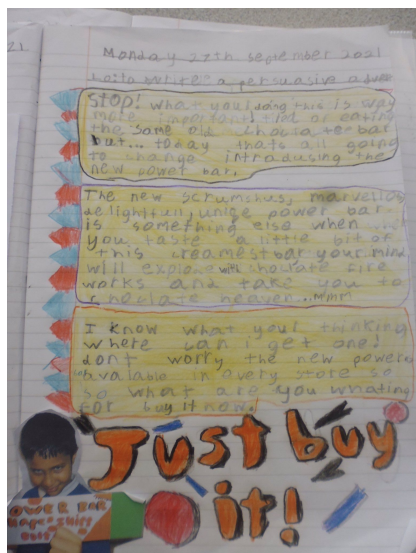 21
Monday 27th september 2021
to write: a persuasive
STOP! what you doing this is way
more important! tied of eating
the same old chocla te bar
but... today thats all going
to change intradusing the
new power bar.
The new scrumshus, marvellous
delightfull, unige power bar
is something else when
you taste a little bit of
this creamest bar your mind
will explone with choclate fire
works and take you to
choclate heaven...mmm
I know what your thinking
where can i get one!
dont worry the new power
available in avery store so
so what are you whating
for buy it now.
Just buy
it!
POWER BAR